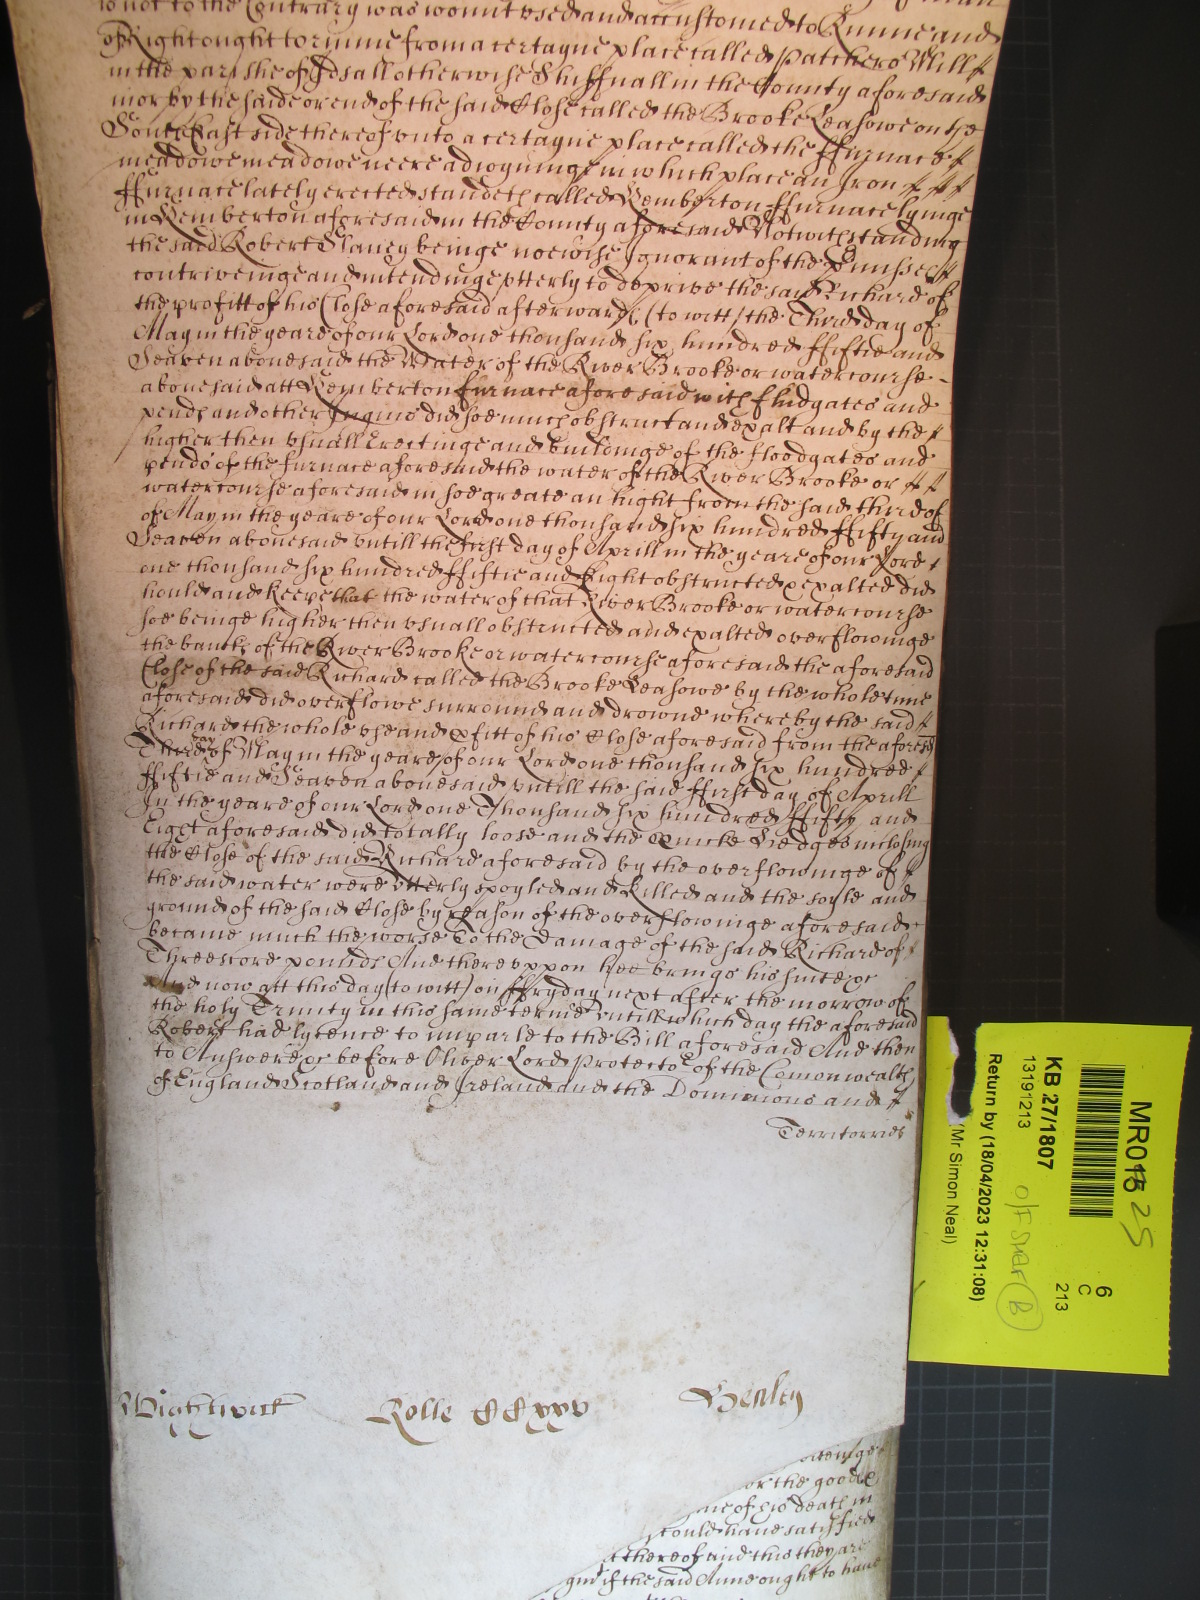 is not to the Contrary was wount vsed and accustomed to Runne and
of Right ought to runne from a certayne place called Patchers Mill
in the parishe of Idsall otherwise Shiffnall in the County aforesaid
by the side or end of the said Close called the Brooke Leasowe on the
South East side thereof vnto a certayne place called the ffurnace
meadowe meadowe neere adioyninge in which place an Iron
ffurnace lately erected standeth called Kemberton ffurnace lyinge
in Kemberton aforesaid in the County aforesaid Notwithstandinge
the said Robert Slaney beinge noe wise Ignorant of the Premisses
contriveinge and intendinge vtterly to deprive the said Richard of
the profitt of his Close aforesaid afterwards (to witt) the Third day of
May in the yeare of our Lord one thousand six hundred ffiftie and
Seaven abovesaid the Water of the River Brooke or watercourse
abovesaid att Kemberton furnace aforesaid with fludgates and
pends and other Ingins did soe much obstruct and exalt and by the
higher then vsuall Erectinge and buildinge of the floodgates and
pends of the furnace aforesaid the water of the River Brooke or
watercourse aforesaid in soe greate an hight from the said third of
of May in the yeare of our Lord one thousand six hundred ffifty and
Seaven abovesaid vntill the first day of Aprill in the yeare of our Lord
one thousand six hundred ffiftie and Eight obstructed exalted did
hould and keepe that the water of that River Brooke or watercourse
soe beinge higher then vsuall obstructed and exalted overflowinge
the bancks of the River Brooke or watercourse aforesaid the aforesaid
Close of the said Richard called the Brooke Leasowe by the whole time
aforesaid did overflowe surround and drowne whereby the said
Richard the whole vse and pfitt of his Close aforesaid from the aforesd
Third day of May in the yeare of our Lord one thousand six hundred
ffiftie and Seaven abovesaid vntill the said ffirst day of Aprill
In the yeare of our Lord one Thousand six hundred ffifty and
Eight aforesaid did totally loose and the Quicke Hedges inclosing
the Close of the said Richard aforesaid by the overflowinge of
the said water were vtterly spoyled and killed and the soyle and
ground of the said Close by reason of the overflowinge aforesaid
became much the worse To the Damage of the said Richard of
Threescore pounds And therevppon hee brings his suite &c
And now att this day (to witt) on ffryday next after the morrow of
the holy Trinity in this same terme vntill which day the aforesaid
Robert had lycence to imparle to the Bill aforesaid And then
to Answere &c before Oliver Lord Protector of the Comonwealth
of England Scotland and Ireland and the Dominions and
Territorries
Wightwick Rolle CCxxv Henley
or the goods
time of his death in
could have satisfied
thereof and this they are
if the said Anne ought to have
MR01 25
6
C
213
KB 27/1807
13191213
O/F Shelf B
Return by (18/04/2023 12:31:08)
(Mr Simon Neal)